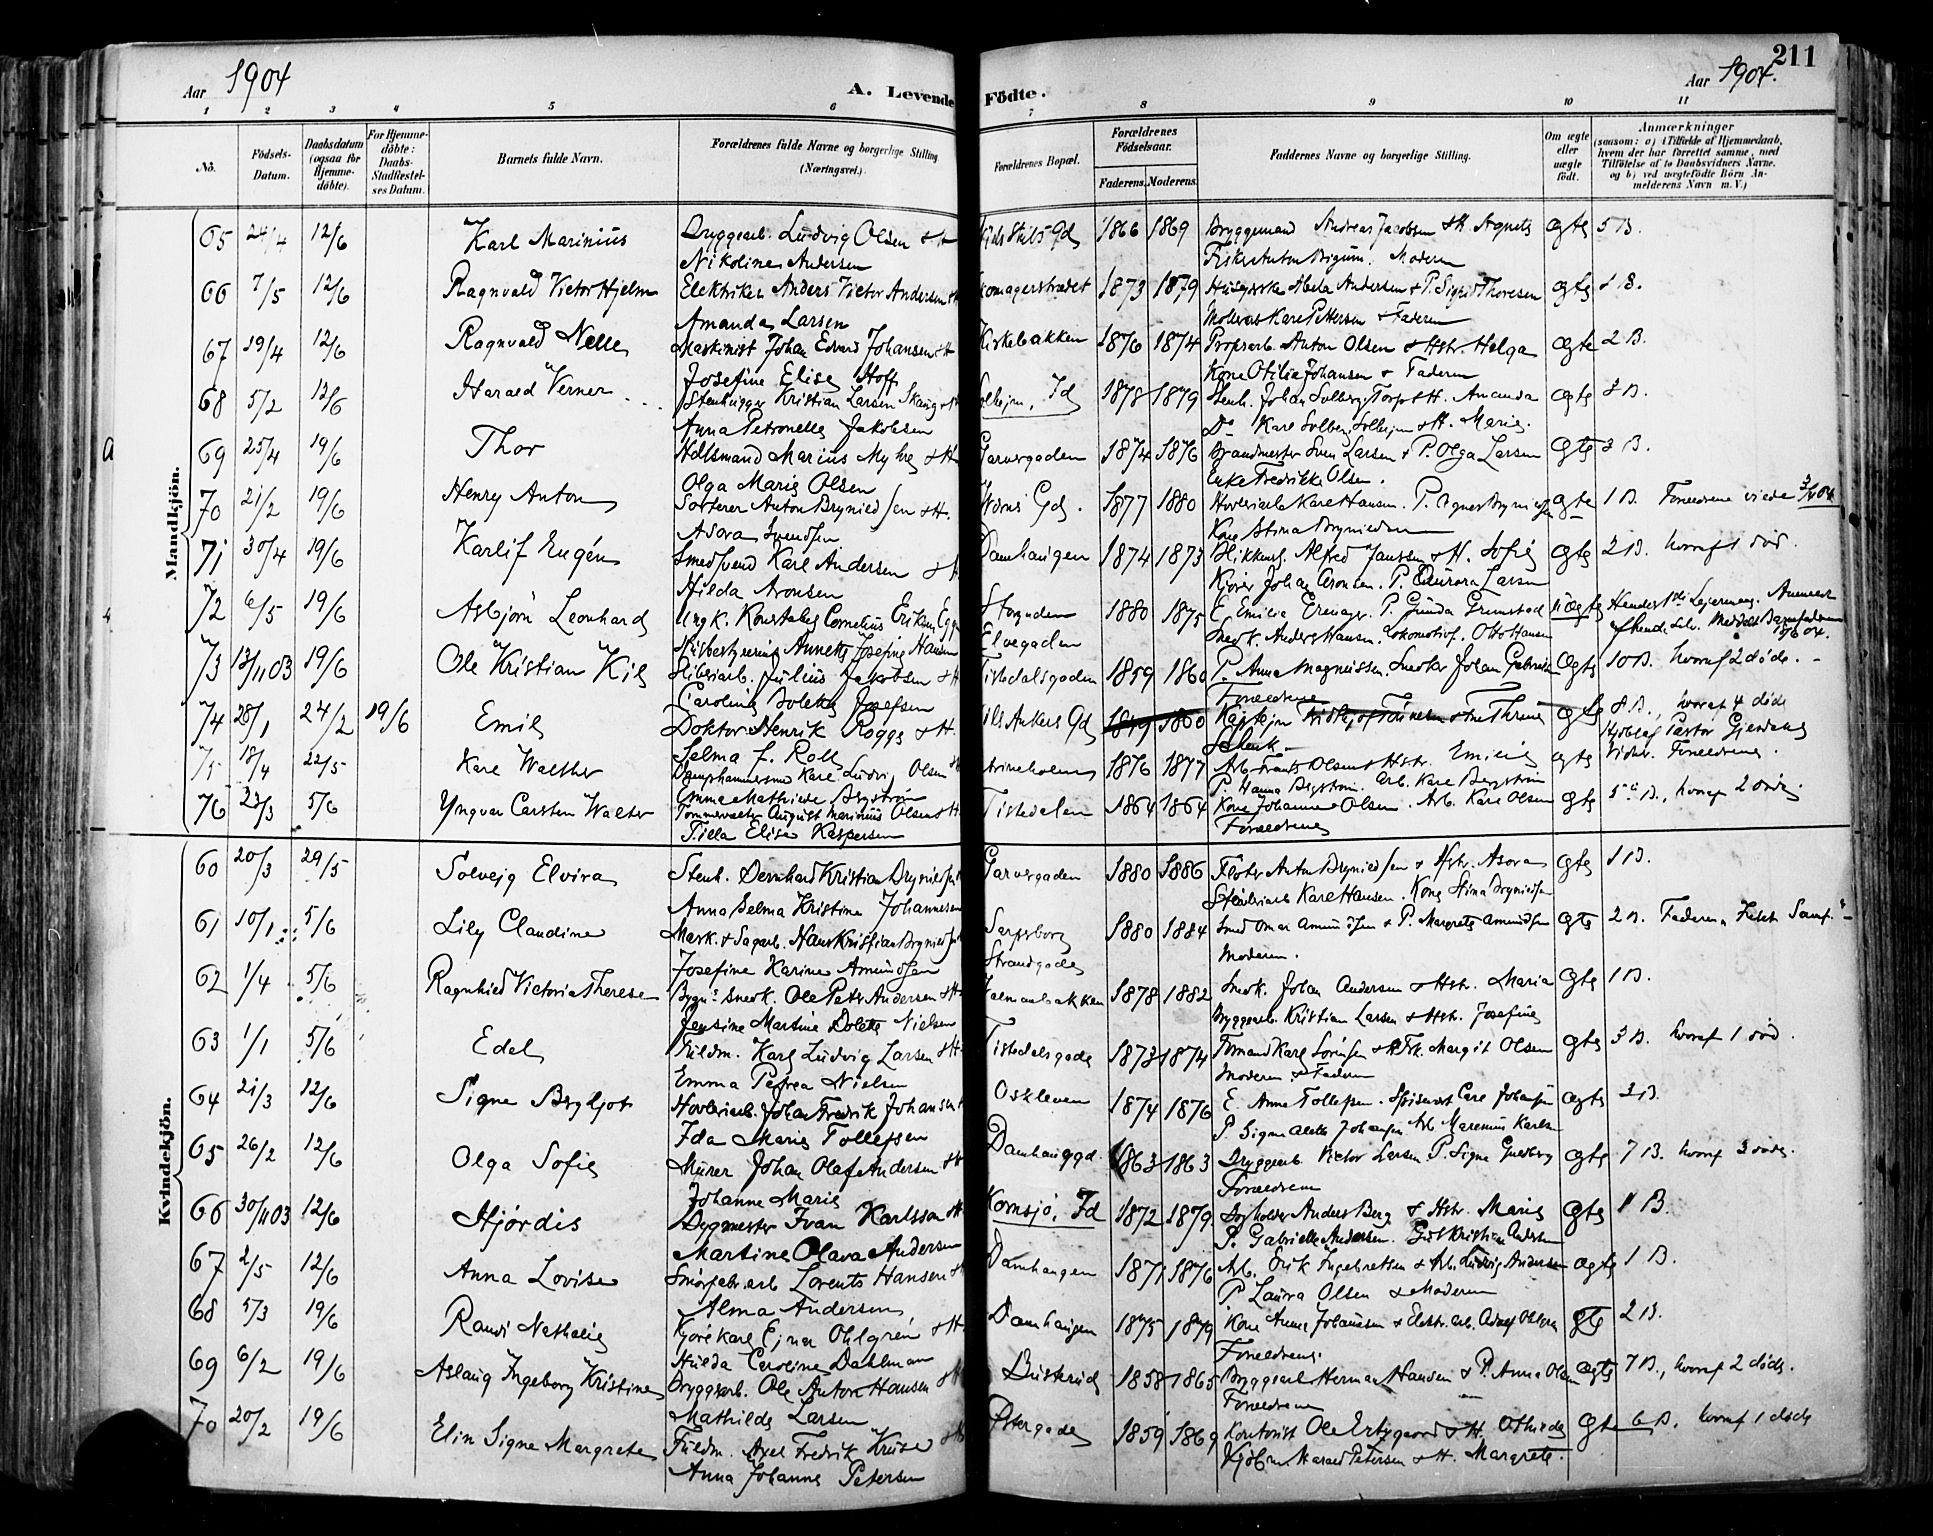 Aar 1904
A. Levende Födte.
Aar 1904.
211
1 2 3 4 5 6 7 8 9 10 11
No.
Födsels-Datum.
Daabsdatum (ogsaa för Hjemme-döbte).
For Hjemme-döbte: Daabs-Stadfæstel-ses Datum.
Barnets fulde Navn.
Forældrenes fulde Navne og borgerlige Stilling (Næringsvei).
Forældrenes Bopæl.
Forældrenes Födselsaar.
Faderens. Moderens.
Faddernes Navne og borgerlige Stilling.
Om ægte eller uægte födt.
Anmærkninger
(saasom: a) i Tilfælde af Hjemmedaab,
hvem der har forrettet samme, med
Tilföielse af to Daabsvidners Navne.
og b) ved uægtefödte Börn An-
melderens Navn m. V.)
Mandkjön.
65 24/4 12/6 Karl Marinius Bryggearb. Ludvig Olsen & H 1866 1869 Bryggemand Andreas Jacobsen & H. Agnets ægte 5 B.
Nikoline Andersen Fisker Anton Moderen
66 7/5 12/6 Ragnvald Victor Hjelm Elektriker Anders Victor Andersen 1873 1879 Andersen & P. Sigrid Thoresen ægte 1 B.
Amanda Larsen Karl Pettersen & Faderen
67 19/4 12/6 Ragnvald Nelle Maskinist Johan Edvard Johansen & H Kirkebakken 1876 1874 Anton Olsen & Hstr. Helga ægte 2 B.
Josefine Elise Hoff Kone Otilie Johansen & Faderen
68 5/2 12/6 Harald Verner Stenhugger Kristian Larsen Skaug Solheim, Id 1878 1879 Stenh. Johan Solberg, Torp & H. Amanda ægte
Anna Petronelle Jakobsen Do Karl Solberg Solheim & H. Marie.
69 25/4 19/6 Thor Marius Myhre & H Garvergaden 1874 1876 Brandmester Sven Larsen & P. Olga Larsen ægte 3 B.
Olga Marie Olsen Enke Fredrikke Olsen.
70 21/2 19/6 Henry Anton Sorterer Anton Brynildsen & H. Gd. 1877 1880 Karl Hansen. P. Agnes Brynildsen ægte 1 B. Forældrene viede 3/4 04
Asora Svendsen Kone Stina Brynildsen
71 30/4 19/6 Karlif Eugén Smedsvend Karl Andersen & H Damhaugen 1874 1873 Blikkensl. Alfred Janssen & H. Sofie ægte 2 B. hvoraf 1 död.
Hilda Aronsen Johan Aronsen. P. Aurora Larsen
72 6/5 19/6 Asbjörn Leonhard Ungk. Konstabel Cornelius Eriksen 1880 1875 E. Emilie P. Gunda Grimstad uægte
Annette Josefine Hansen Elvegaden Snedk. Anders Hansen. Lokomotivf. Otto Hansen
73 13/11 03 19/6 Ole Kristian Kil Sliberiarb. Julius Jakobsen & H Tistedalsgaden 1859 1860 P. Anna Magnussen. Snedker Johan Gabrielsen ægte 10 B. hvoraf 2 döde.
Caroline Bolette Josefsen Forældrene
74 28/1 24/2 19/6 Emil Doktor Henrik Roggs & H. Nils Ankers Gd 1849 1860 ægte 8 B., hvoraf 4 döde
Selma f. Roll Pastor Gjerdang
75 18/4 22/5 Karl Walther Karl Ludvig Olsen & H 1876 1877 Arb. Frantz Olsen & Hstr. Emilie ægte Vidner. Forældrene.
Emma Mathilde Bergström P. Hanna Bergström. Arb. Karl Bergström
76 23/3 5/6 Yngvar Carsten Walter August Marinius Olsen & H. Tistedalen 1864 1864 Kone Johanne Olsen. Arb. Karl Olsen ægte 5 B., hvoraf 2 döde
Tilla Elise Kaspersen Forældrene
Kvindekjön.
60 20/3 29/5 Solveig Elvira Stenh. Bernhard Kristian Brynildsen Garvergaden 1880 1886 Anton Brynildsen & Hstr. Asora ægte 1 B.
Anna Selma Kristine Johannessen Karl Hansen. Kone Stina Brynildsen
61 10/1 5/6 Lily Claudine Mask. & Sagarb. Hans Kristian Brynildsen Sarpsborg 1880 1884 Smed Omar Amundsen & P. Margrete Amundsen ægte 2 B.
Josefine Karine Amundsen Strandgade Moderen.
62 1/4 5/6 Ragnhild Victoria Therese Bygn. Snedk. Ole Peter Andersen & H 1878 1882 Snedk. Johan Andersen & Hstr. Maria ægte 1 B.
Jensine Martine Dolette Nielsen Bryggearb. Kristian Larsen & Hstr. Josefine
63 1/1 5/6 Edel Fuldm. Karl Ludvig Larsen & H Tistedalsgade 1873 1874 Karl Sörensen & Frk. Margit Olsen ægte 3 B. hvoraf 1 död.
Emma Petrea Nielsen Moderen & Faderen
64 21/3 12/6 Signe Bergljot Hövleriarb. Johan Fredrik Johansen Oskleven 1874 1876 E. Anne Tollefsen. Carl Johansen ægte 2 B.
Ida Marie Tollefsen P. Signe Alette Johansen Arb. Marenius Karlsen
65 26/2 12/6 Olga Sofie Murer Johan Olaf Andersen & H Damhauggd. 1863 1863 Bryggearb. Victor Larsen P. Signe ægte 7 B. hvoraf 3 döde.
Johanne Marie Forældrene
66 30/11 03 12/6 Hjördis Bygmester Ivan Karlsson & H Kornsjö, Id 1872 1879 Anders Berg & Hstr. Marie ægte 1 B.
Martine Olava Andersen P. Gabrielle Andersen. Kristian Andersen
67 2/5 12/6 Anna Lovise Smörfabr.arb. Lorents Hansen & H Damhaugen 1871 1876 Arb. Erik Ingebretsen & Arb. Ludvig Andersen ægte 1 B.
Alma Andersen P. Laura Olsen & Moderen
68 5/3 19/6 Randi Nathalie Kjörekarl Ejnar Ohlgrén & H Damhaugen 1875 1879 Kone Anna Johansen & Elektr. arb. Adolf Ohlgren ægte 2 B.
Hulda Caroline Dahlman Forældrene.
69 6/2 19/6 Aslaug Ingeborg Kristine Bryggearb. Ole Anton Hansen & H Buskerud 1858 1865 Bryggearb. Herman Hansen & P. Anna Olsen ægte 7 B., hvoraf 2 döde.
Mathilde Larsen Forældrene
70 20/2 19/6 Elin Signe Margrete Fuldm. Axel Fredrik Kruse & H Östergade 1859 1869 Kontorist Ole Ertzgaard & H. Othilde ægte 6 B. hvoraf 1 död
Anna Johanne Petersen Kjöbm. Harald Petersen & H. Margrete.